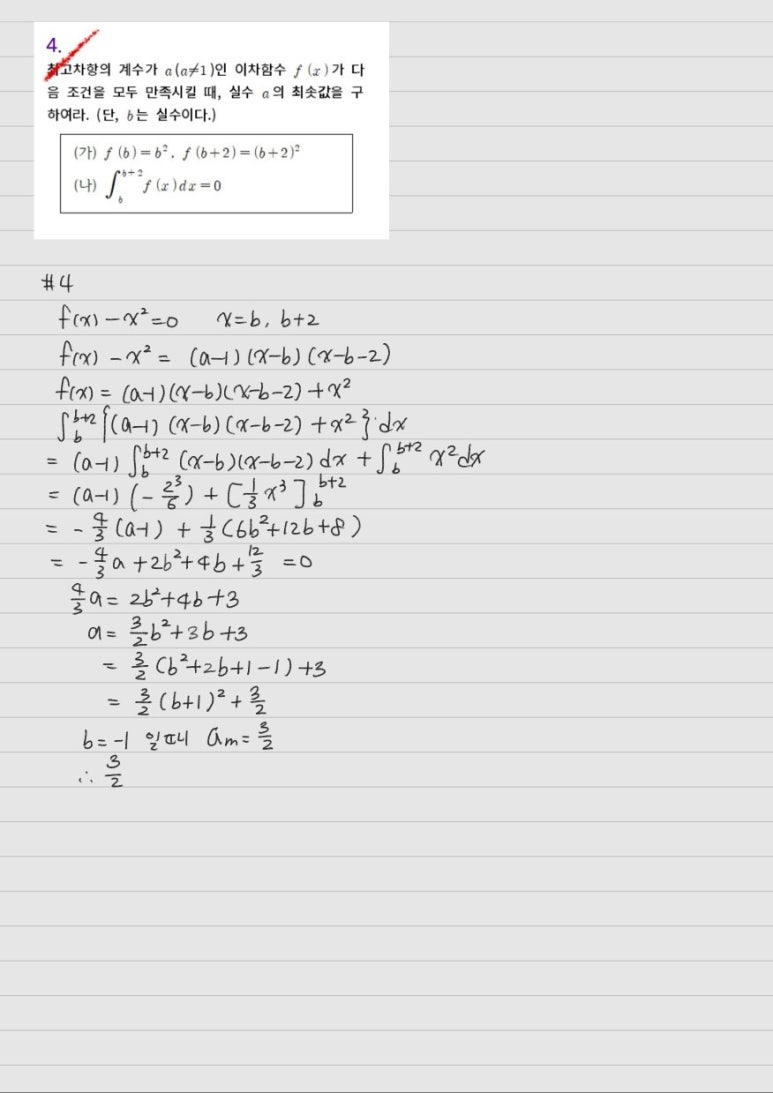 4.
최고차항의 계수가 a(a≠1)인 이차함수 f(x)가 다
음 조건을 모두 만족시킬 때, 실수 a의 최솟값을 구
하여라. (단, b는 실수이다.)
(가) f(b)=b², f(b+2)=(b+2)²
(나) ∫_b^{b+2} f(x)dx=0
#4
f(x)-x²=0 x=b, b+2
f(x)-x² = (a-1)(x-b)(x-b-2)
f(x) = (a-1)(x-b)(x-b-2)+x²
∫_b^{b+2} {(a-1)(x-b)(x-b-2)+x²}dx
= (a-1)∫_b^{b+2} (x-b)(x-b-2)dx + ∫_b^{b+2} x²dx
= (a-1)(-2³/6) + [1/3 x³]_b^{b+2}
= -4/3(a-1) + 1/3(6b²+12b+8)
= -4/3a+2b²+4b+12/3 =0
4/3a = 2b²+4b+3
a = 3/2b²+3b+3
= 3/2(b²+2b+1-1)+3
= 3/2(b+1)²+3/2
b=-1 일때 am=3/2
∴ 3/2